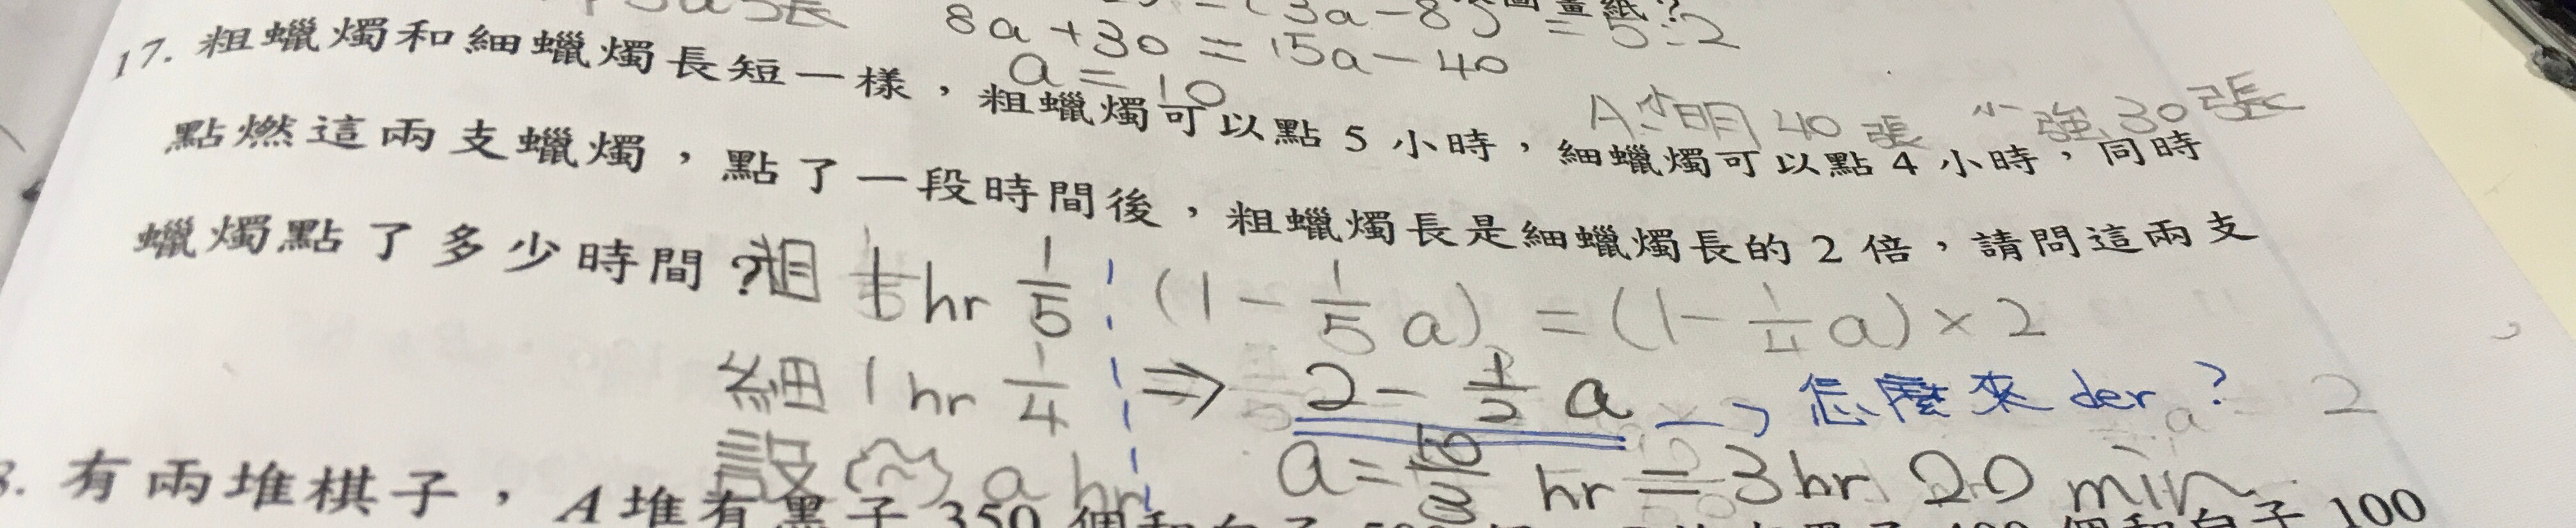 8a+30=15a-40
a=10
17. 粗蠟燭和細蠟燭長短一樣，粗蠟燭可以點 5 小時，細蠟燭可以點 4 小時，同時
A:小明 40 張 小強 30 張
點燃這兩支蠟燭，點了一段時間後，粗蠟燭長是細蠟燭長的 2 倍，請問這兩支
蠟燭點了多少時間？
粗 1 hr 1/5
(1-1/5a)=(1-1/4a)×2
細 1 hr 1/4
⇒ 2-1/2a → 怎麼來 der ?
設 a hr
a=10/3 hr=3hr 20 min
有兩堆棋子，A 堆有黑子 350 個和白子
100